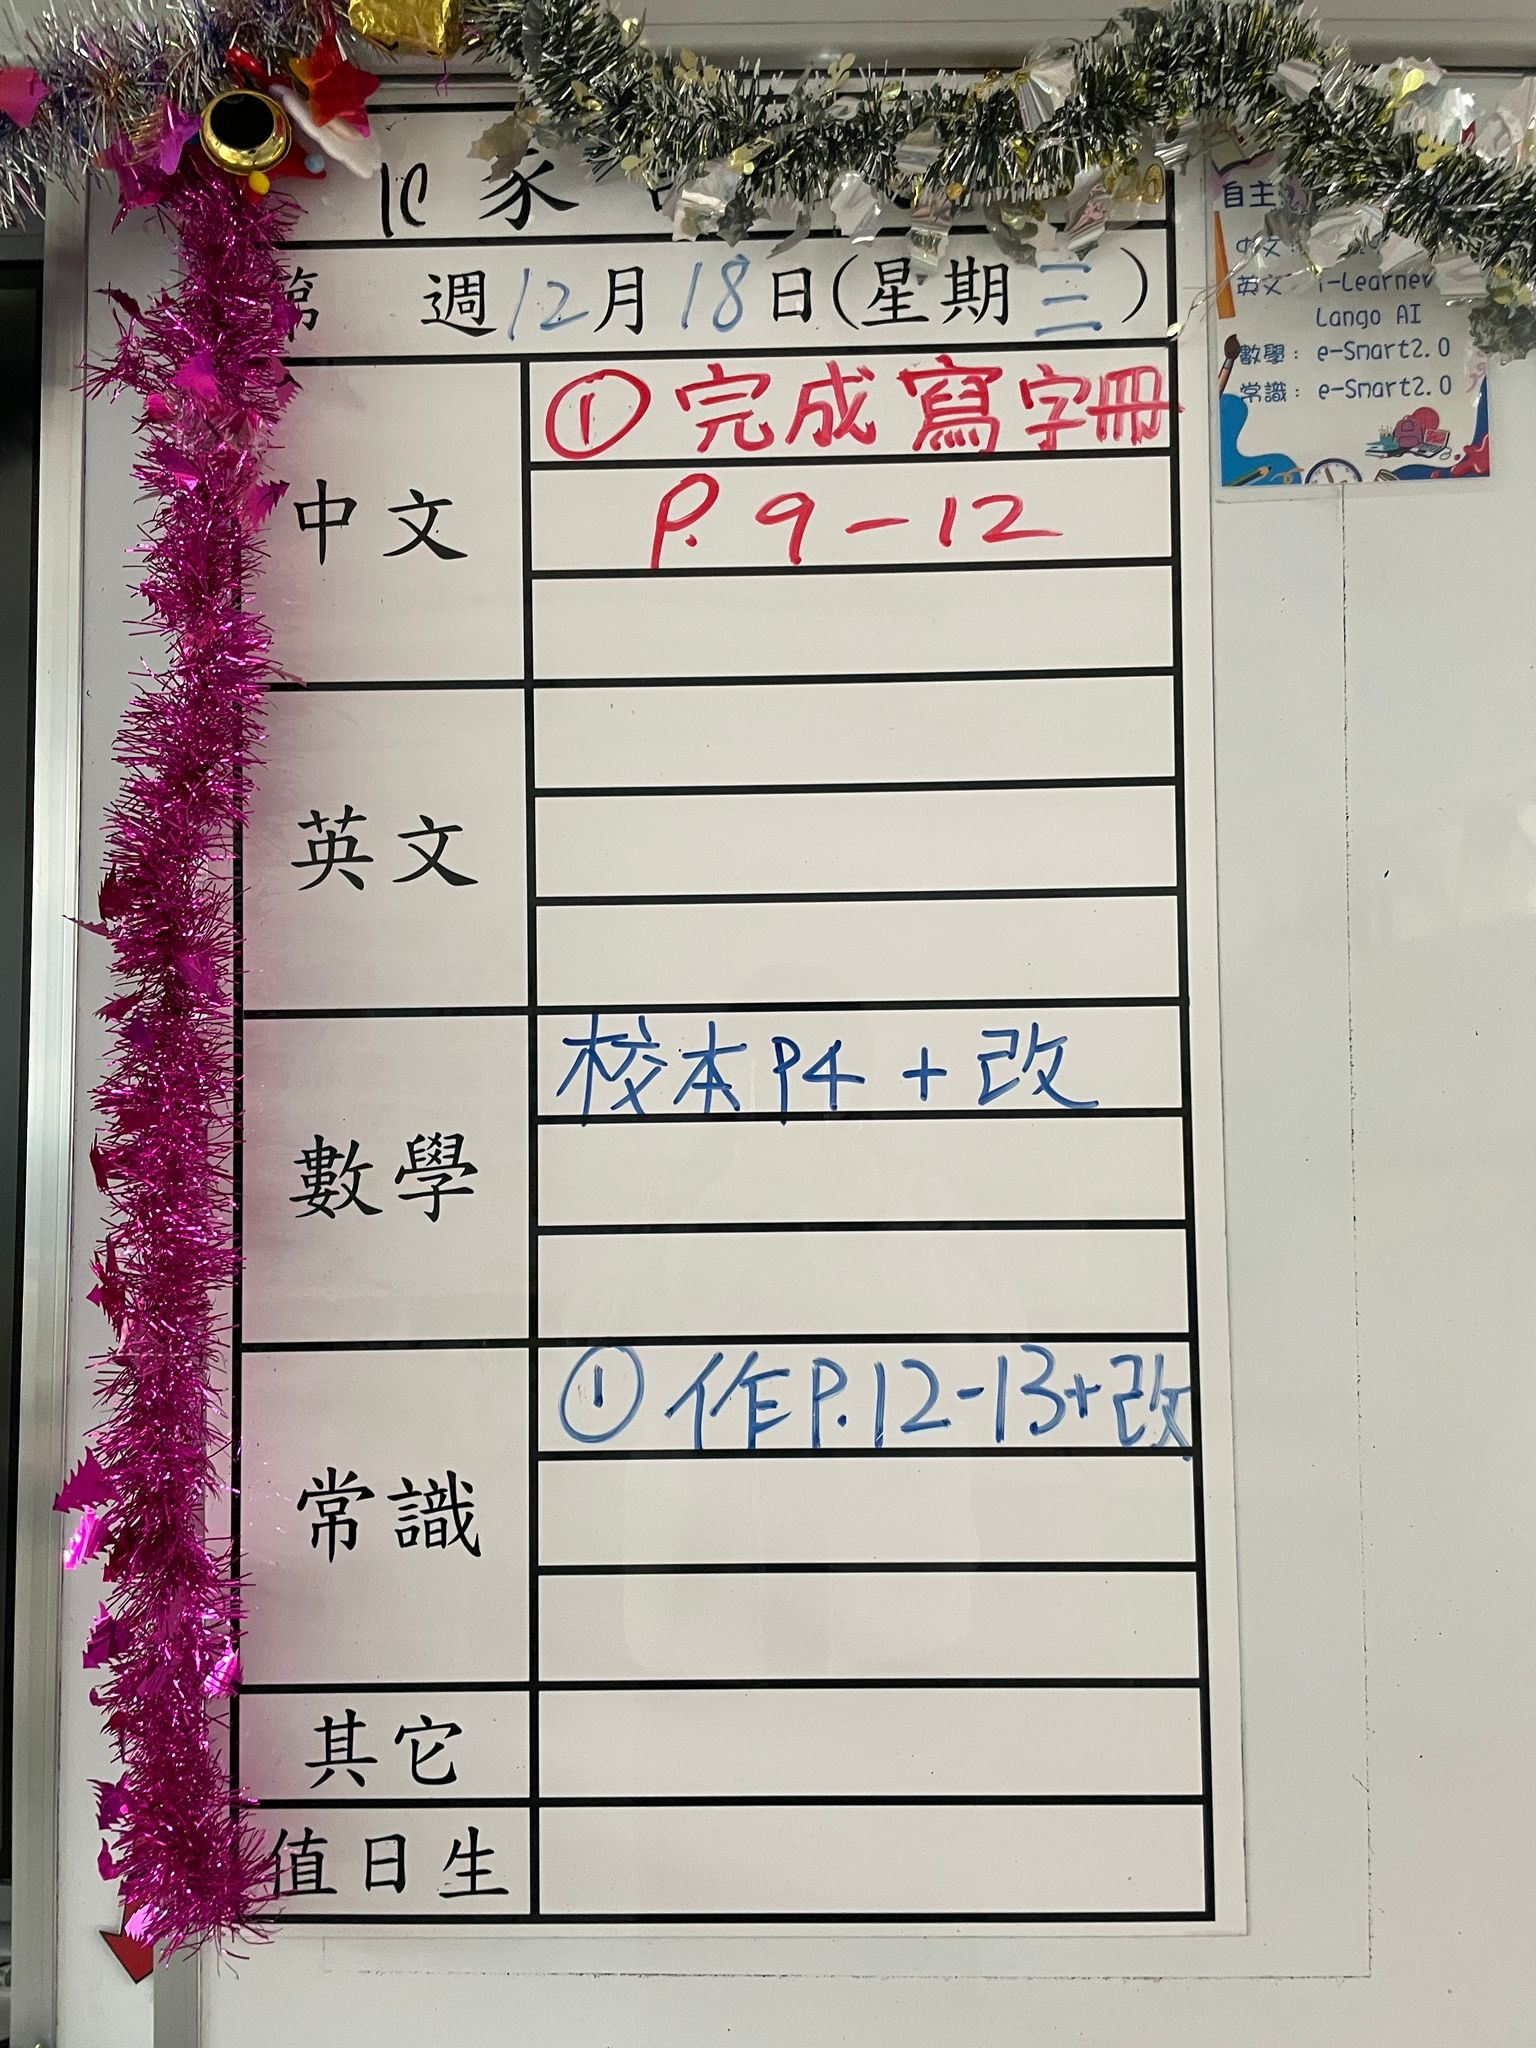 1C 家
第 週 12月 18日(星期三)
中文
① 完成寫字冊
P. 9 - 12
英文
數學
校本 P4 + 改
常識
① 作 P. 12-13+改
其它
值日生
自主
中文：
英文： i-Learner
Lango AI
數學： e-Smart2.0
常識： e-Smart2.0